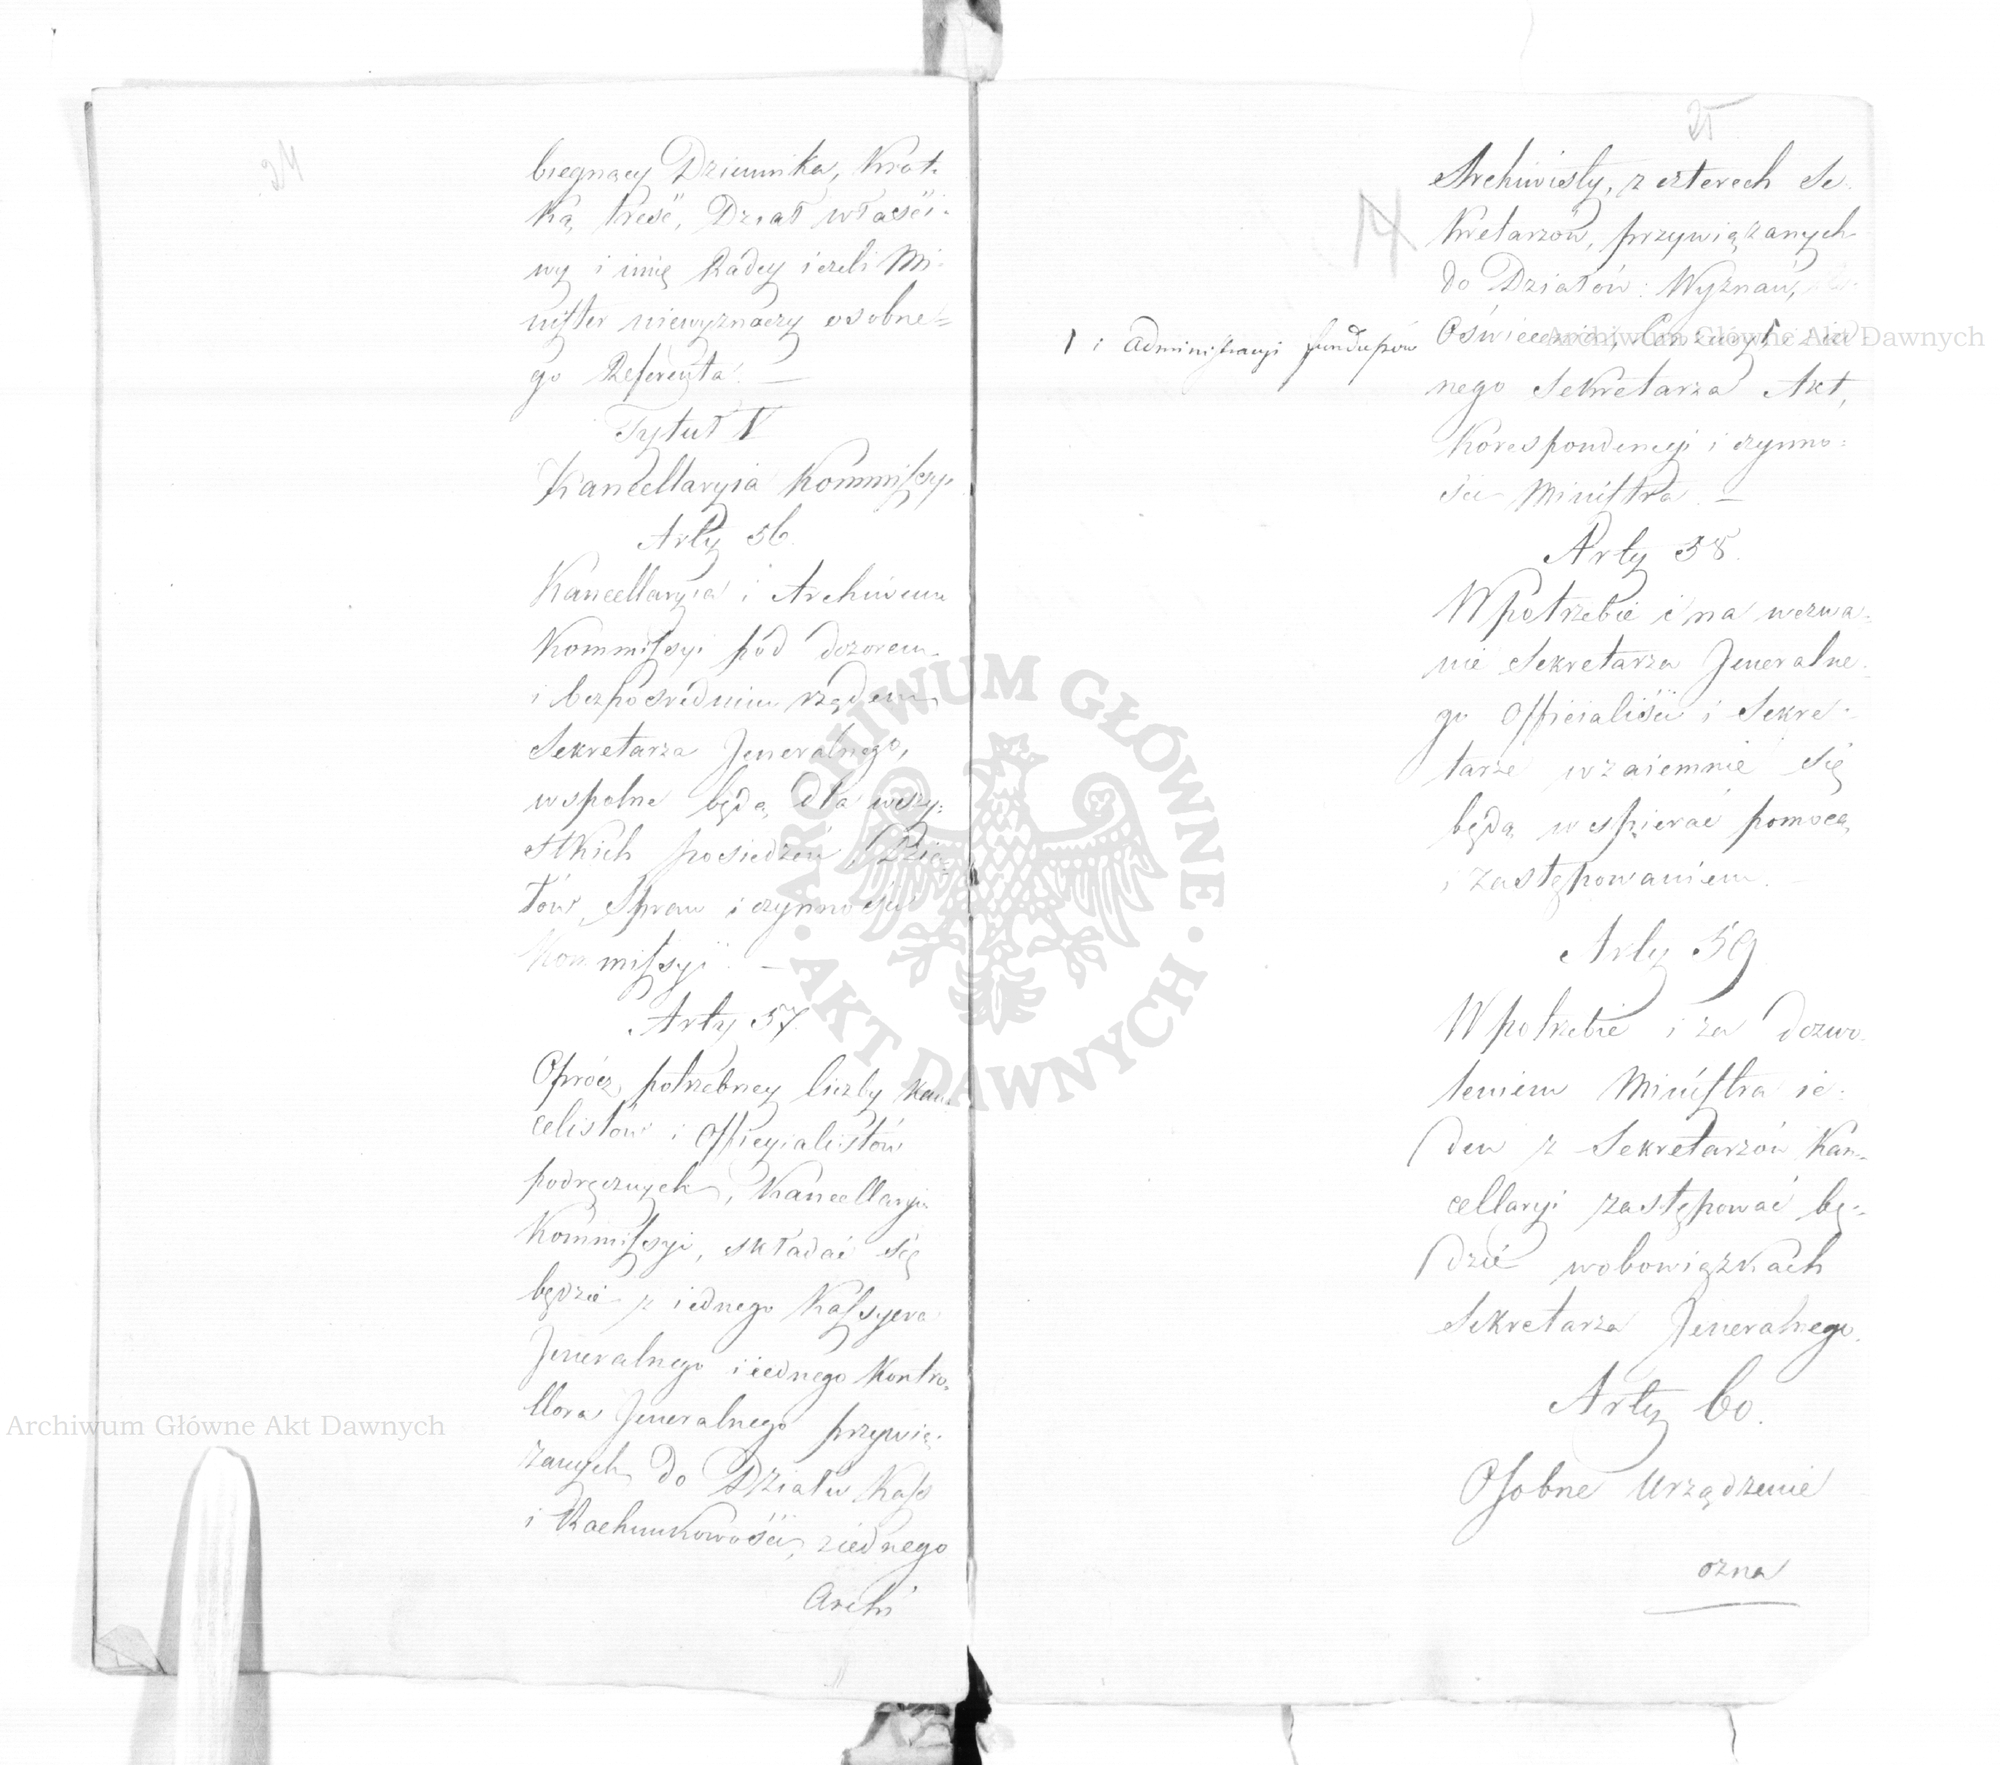 24
biegnący Dziennika, Krot-
ką treść, Dział właści-
wy i imię Radcy ieżeli Mi-
nister niewyznaczy osobne-
go Referenta. —
Tytuł V
Kancellaryia Kommissyi
Arty 56.
Kancellaryia i Archiwum
Kommissyi pod dozorem
i bezpośrednim rządem
Sekretarza Jeneralnego,
wspolne będą dla wszy-
stkich posiedzeń, Dzia-
łów, Spraw i czynności
Kommissyi. —
Arty 57.
Oprócz potrzebney liczby kan-
celistów i Officyialistów
podręcznych, Kancellaryia
Kommissyi, składać się
będzie z iednego Kassyera
Jeneralnego i iednego Kontro-
llora Jeneralnego przywią-
zanych do Działu Kass
i Rachunkowości, z iednego
Archi
25
14
Archiwisty, z czterech Se-
kretarzów, przywiązanych
do Działów: Wyznań,
Oświecenia,
i administracyi funduszów
nego Sekretarza Akt,
Korespondencyi i czynno-
ści Ministra. —
Arty 58.
W potrzebie i na wezwa-
nie Sekretarza Jeneralne-
go Officialiści i Sekre-
tarze wzaiemnie się
będą wspierać pomocą
i zastępowaniem. —
Arty 59
W potrzebie i za dozwo-
leniem Ministra ie-
den z Sekretarzów Kan-
cellaryi zastępować bę-
dzie w obowiązkach
Sekretarza Jeneralnego.
Arty 60.
Osobne Urządzenie
ozna
Archiwum Główne Akt Dawnych
Archiwum Główne Akt Dawnych
ARCHIWUM GŁÓWNE · AKT DAWNYCH ·